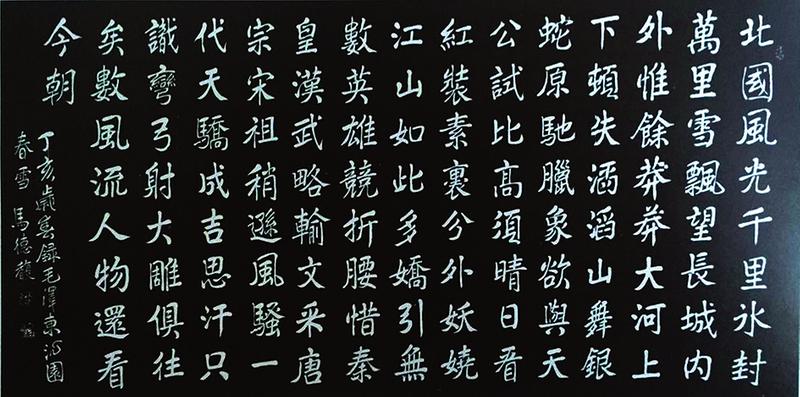 北國風光千里氷封
萬里雪飄望長城内
外惟餘莽莽大河上
下頓失滔滔山舞銀
蛇原馳臘象欲與天
公試比高須晴日看
紅裝素裹分外妖嬈
江山如此多嬌引無
數英雄競折腰惜秦
皇漢武略輸文采唐
宗宋祖稍遜風騷一
代天驕成吉思汗只
識彎弓射大雕俱往
矣數風流人物還看
今朝
丁亥歲春錄毛澤東沁園
春雪 馬德馥